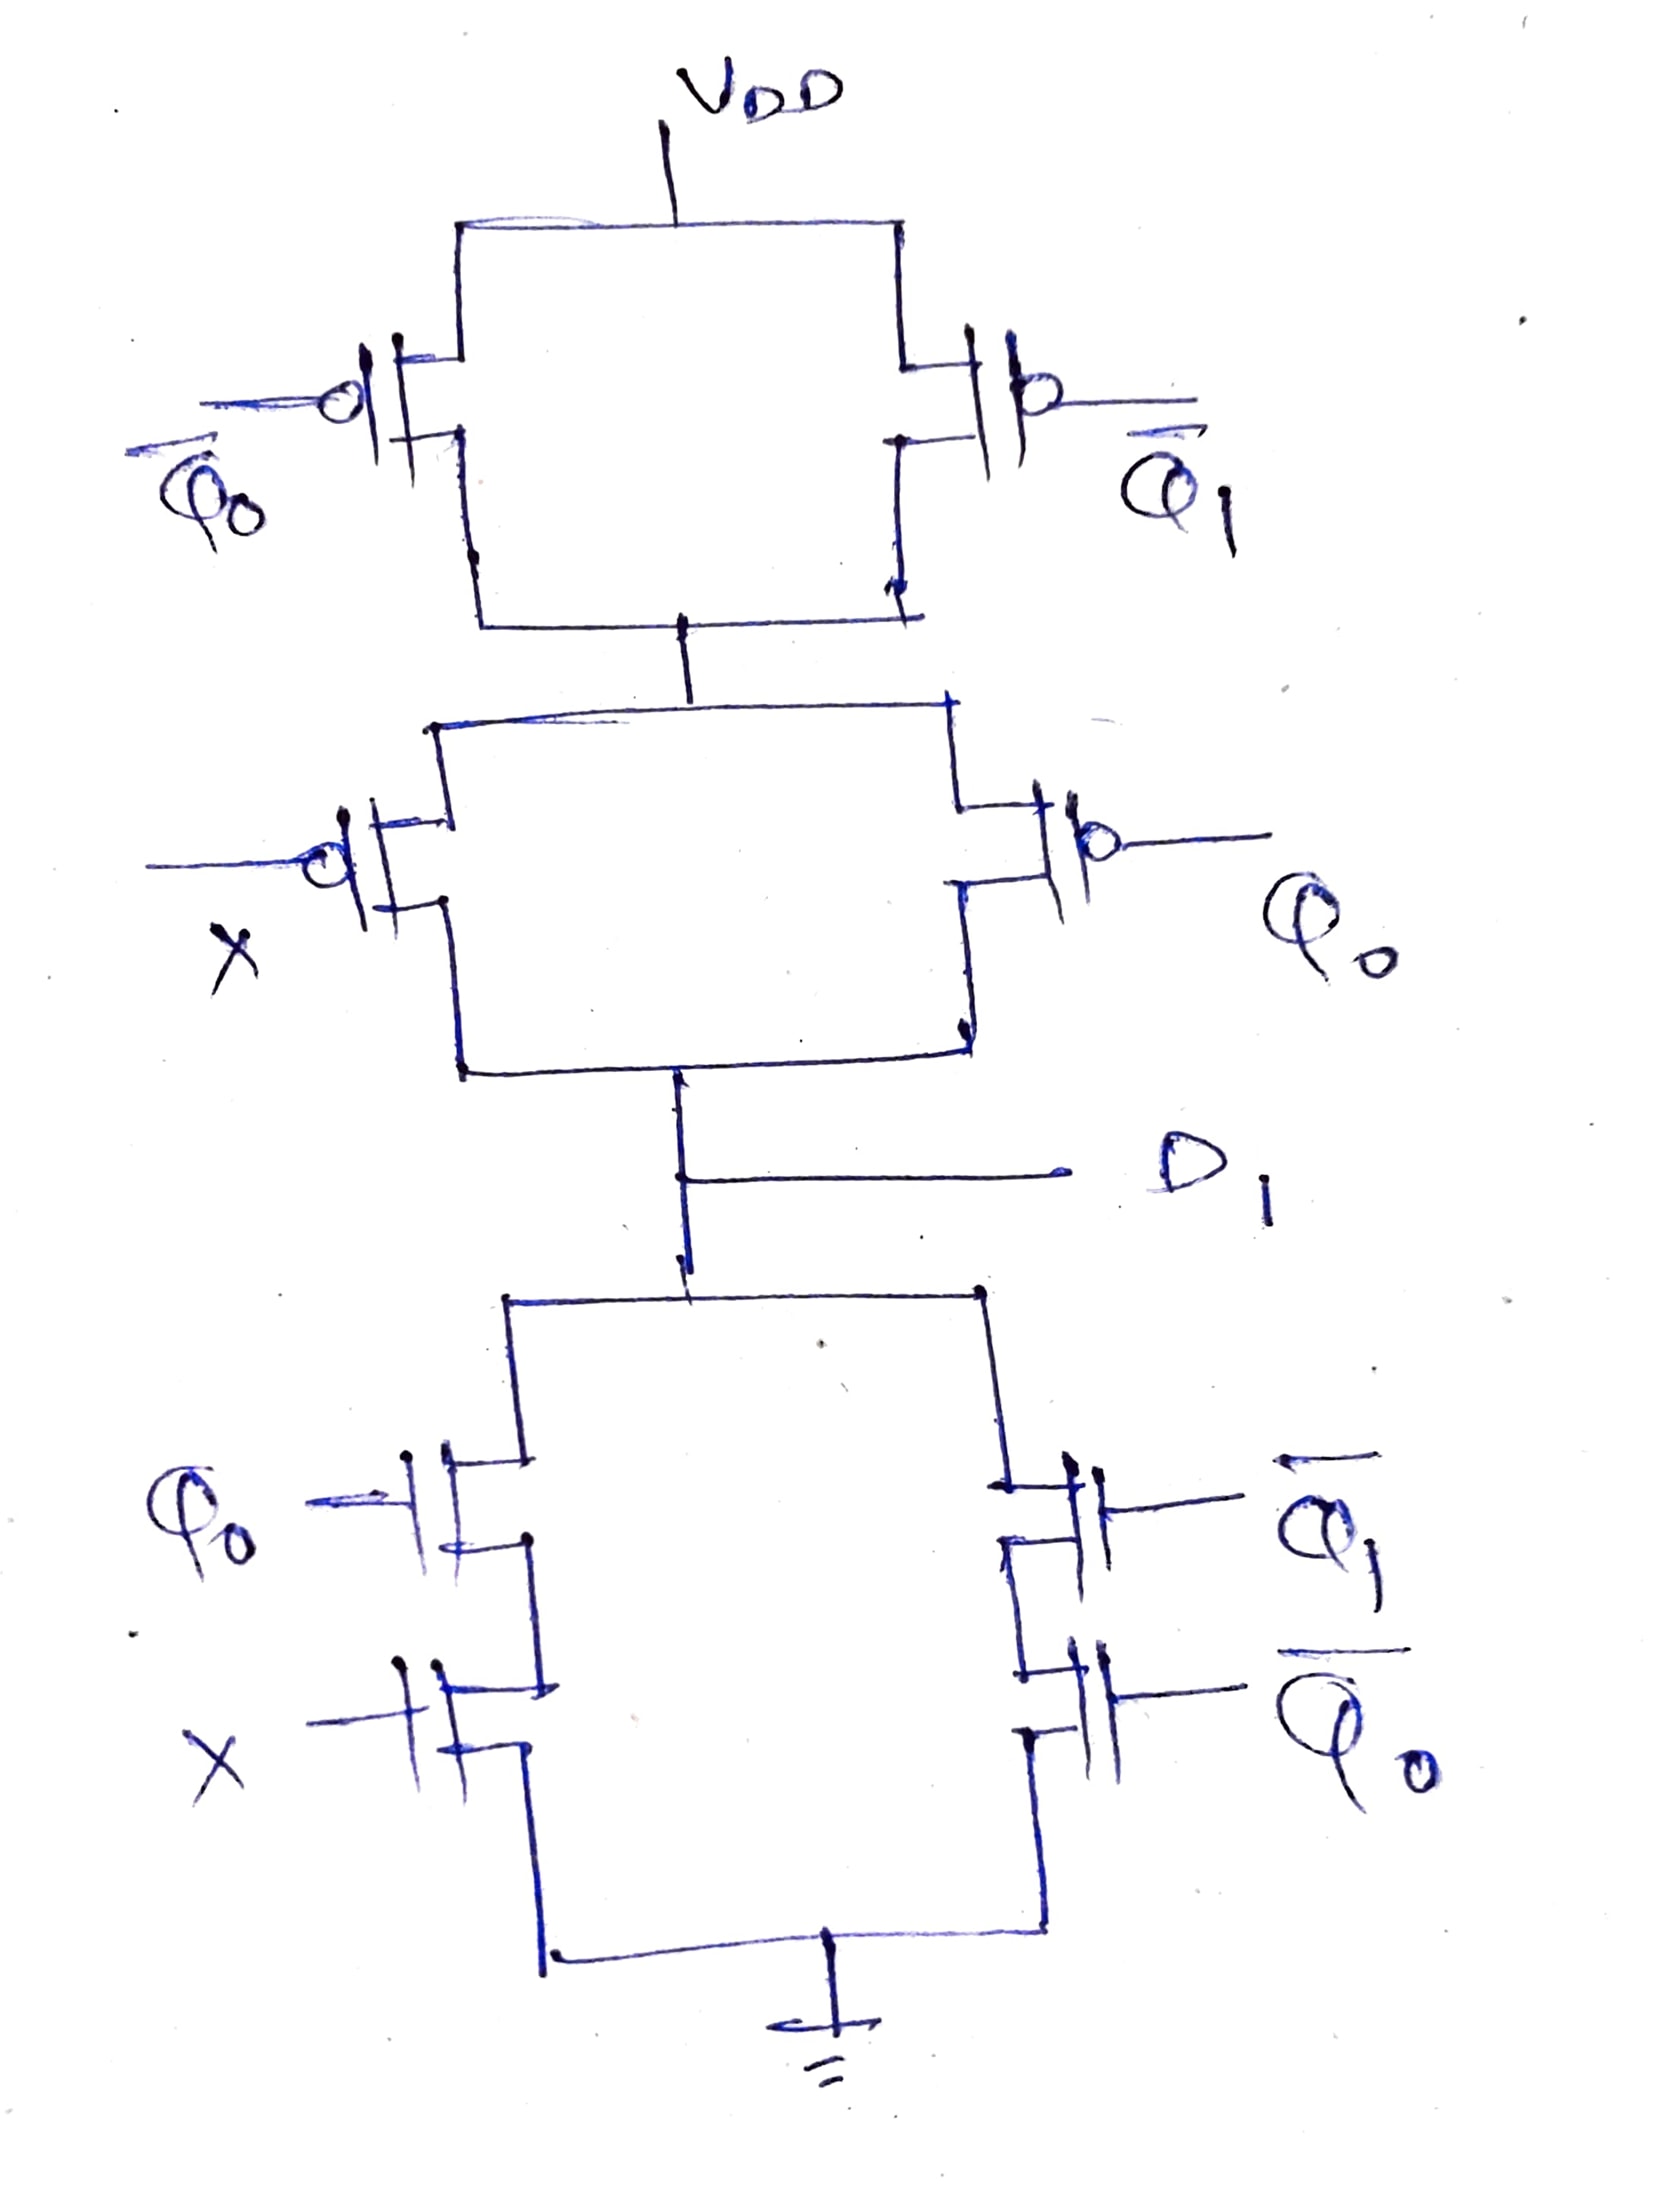 VDD
Q̅0 Q̅1
X Q0
D1
Q0 Q̅1
X Q̅0